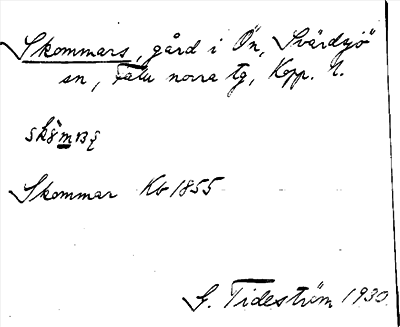 Skommars, gård i Ön, Svärdsjö
sn, Falu norra tg, Kopp. l.
Skommar Kb 1855
G. Tideström 1930